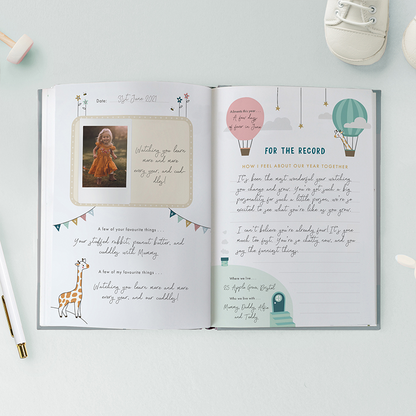 Date: 21st June 2021
Watching you learn
more and more
every year, and our
cuddles!
A few of your favourite things . . .
Your stuffed rabbit, peanut butter, and
cuddles with Mummy.
A few of my favourite things . . .
Watching you learn more and more
every year, and our cuddles!
Adventures this year...
A few days
of fever in June
FOR THE RECORD
HOW I FEEL ABOUT OUR YEAR TOGETHER
It's been the most wonderful year watching
you change and grow. You've got such a big
personality for such a little person, we're so
excited to see what you're like as you grow.
I can't believe you're already four! It's gone
much too fast. You're so chatty now, and you
say the funniest things.
Where we live...
Apple Grove, Bristol
Who we live with...
Mummy, Daddy, Alfie
and Teddy